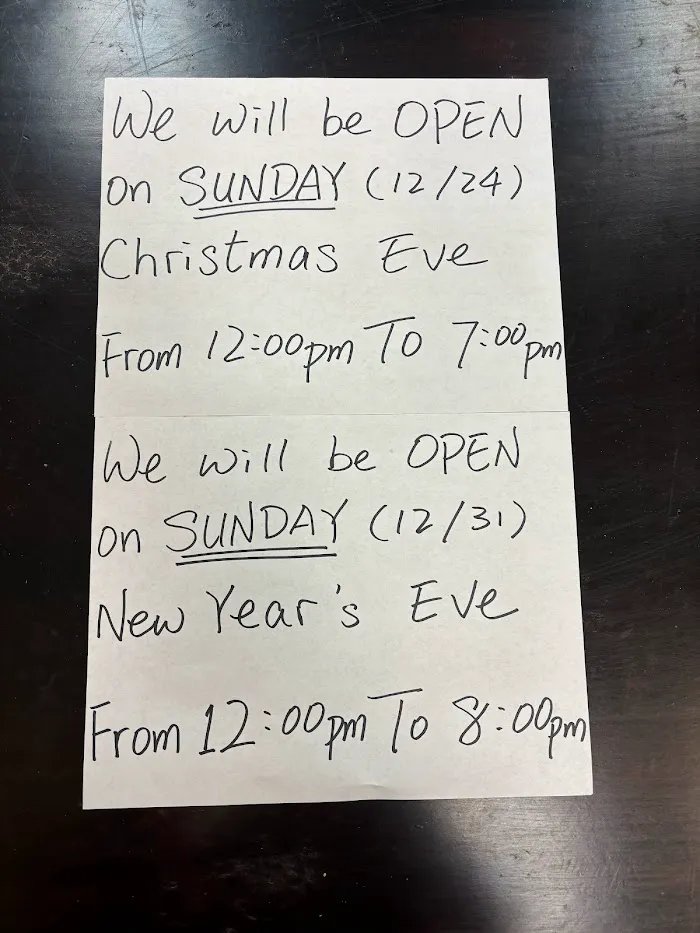 We will be OPEN
on SUNDAY (12/24)
Christmas Eve
From 12:00pm To 7:00pm
We will be OPEN
on SUNDAY (12/31)
New Year's Eve
From 12:00pm To 8:00pm